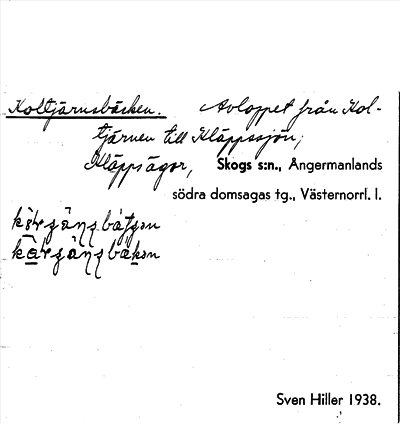 Koltjärnsbäcken. Avloppet från Kol-
tjärnen till Kläppssjön,
Kläppsägor, Skogs s:n., Ångermanlands
södra domsagas tg., Västernorrl. l.
Sven Hiller 1938.